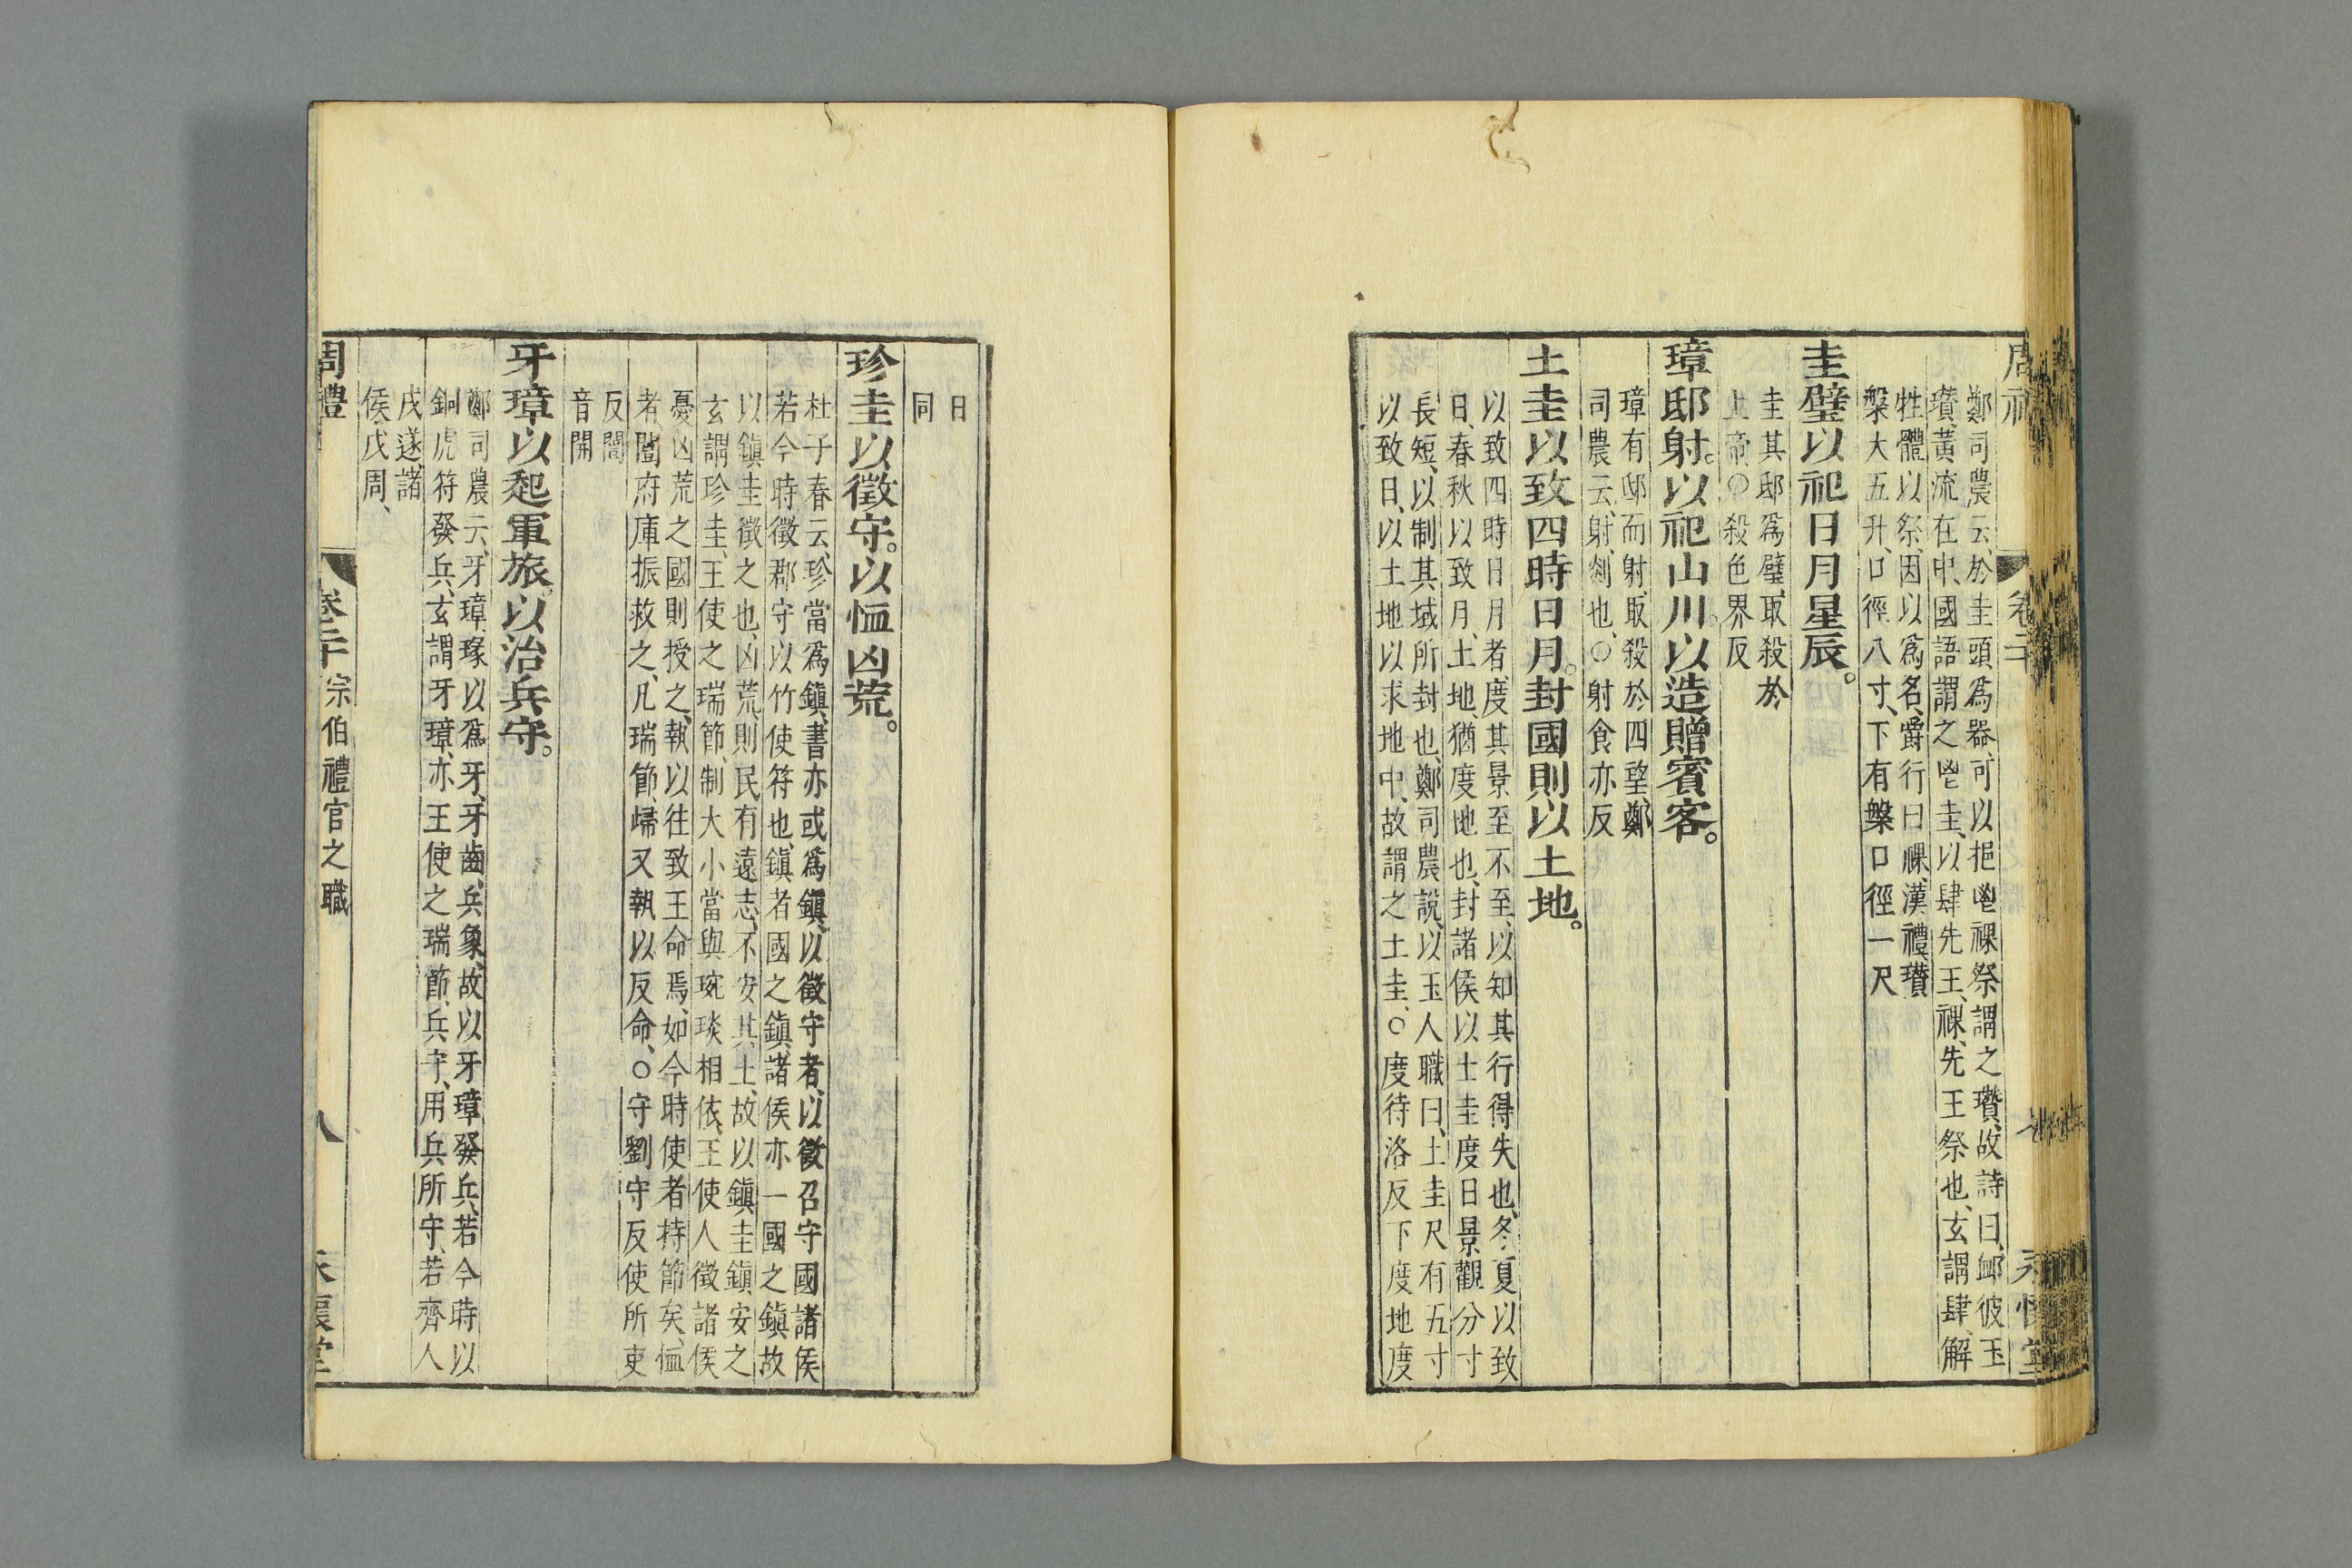 鄭司農云、於圭頭爲器、可以挹鬯祼祭謂之瓚、故詩曰、䘏彼玉
瓚、黃流在中、國語謂之鬯圭、以肆先王、祼、先王祭也、玄謂肆、解
牲體以祭、因以爲名、爵行曰祼、漢禮瓚
槃大五升、口徑八寸、下有槃口徑一尺
圭璧以祀日月星辰。
圭其邸爲璧、取殺於
上帝〇殺色界反
璋邸射。以祀山川。以造贈賓客。
璋有邸而射、取殺於四望、鄭
司農云、射、剡也、〇射食亦反
土圭以致四時日月。封國則以土地。
以致四時日月者、度其景至不至、以知其行得失也、冬夏以致
日、春秋以致月、土地、猶度地也、封諸侯以土圭度日景、觀分寸
長短、以制其域所封也、鄭司農說、以玉人職曰、土圭尺有五寸
以致日、以土地以求地中、故謂之土圭、〇度待洛反下度地度
日
同
珍圭以徵守。以恤凶荒。
杜子春云、珍當爲鎭、書亦或爲鎭、以徵守者、以徵召守國諸侯
若今時徵郡守以竹使符也、鎭者國之鎭、諸侯亦一國之鎭故
以鎭圭徵之也、凶荒、則民有遠志、不安其土、故以鎭圭鎭安之
玄謂珍圭、王使之瑞節、制大小當與琬琰相依、王使人徵諸侯
憂凶荒之國則授之、執以往致王命焉、如今時使者持節矣、恤
者、闓府庫振救之、凡瑞節、歸又執以反命、〇守劉守反使所吏
反闓
音開
牙璋以起軍旅。以治兵守。
鄭司農云、牙璋、瑑以爲牙、牙齒、兵象、故以牙璋發兵、若今時以
銅虎符發兵、玄謂牙璋、亦王使之瑞節、兵守、用兵所守、若齊人
戍遂、諸
侯、戍周、
周禮
卷二十 宗伯禮官之職
八
永懷堂